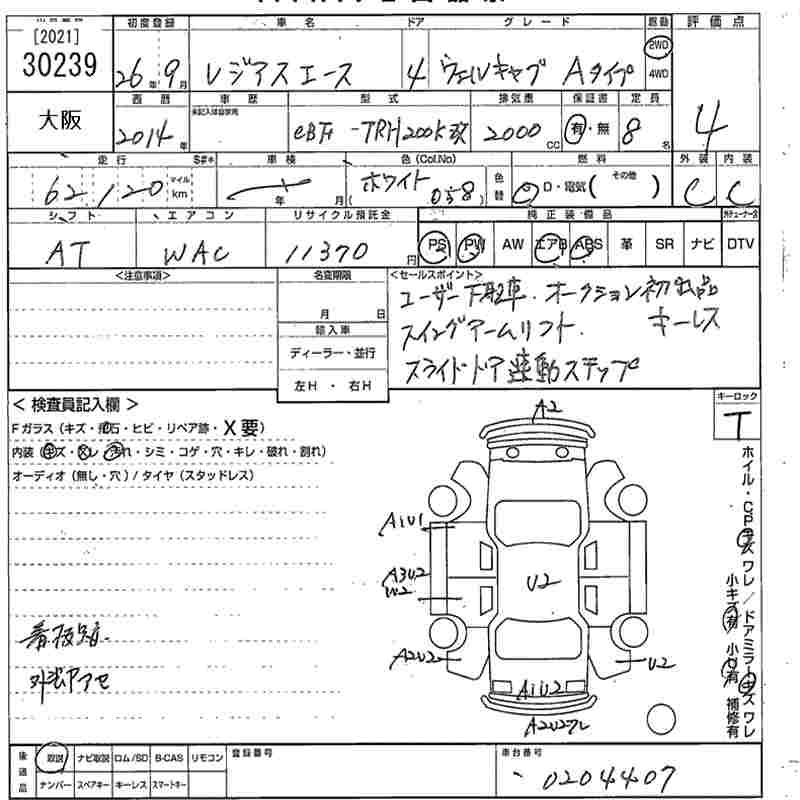 [2021]
30239
大阪
初度登録 車名 ドア グレード 駆動 評価点
26年 9月 レジアスエース 4 ウェルキャブ Aタイプ 2WD 4WD
4
西暦 車歴 型式 排気量 保証書 定員
2014年 CBF -TRH200K改 2000 CC 有・無 8名
走行 S#* 車検 色(Col.No) 燃料 外装 内装
62,120 マイル km 年 月 ホワイト ( 058) 色替 D・電気( その他 ) C C
シフト エアコン リサイクル預託金 純正装備品
AT WAC 11370円 PS PW AW エアB ABS 革 SR ナビ DTV
<注意事項> 名変期限 <セールスポイント>
月 日
輸入車
ディーラー・並行
左H ・ 右H
ユーザー下取車.オークション初出品
スイングアームリフト. キーレス
スライドドア連動ステップ
キーロック
T
< 検査員記入欄 >
Fガラス(キズ・飛石・ヒビ・リペア跡・X要)
内装(キズ・スレ・汚れ・シミ・コゲ・穴・キレ・破れ・割れ)
オーディオ(無し・穴)/タイヤ(スタッドレス)
看板跡.
外装アセ
A2
A1U1
A3U2
W2
A2U2
U2
U2
A1U2
A2U2ワレ
ホイル・CPキズワレ/ドアミラーキズワレ
小キズ有 小U有 補修有
後送品 取説 ナビ取説 ロム/SD B-CAS リモコン
ナンバー スペアキー キーレス スマートキー
登録番号 車台番号
0204407